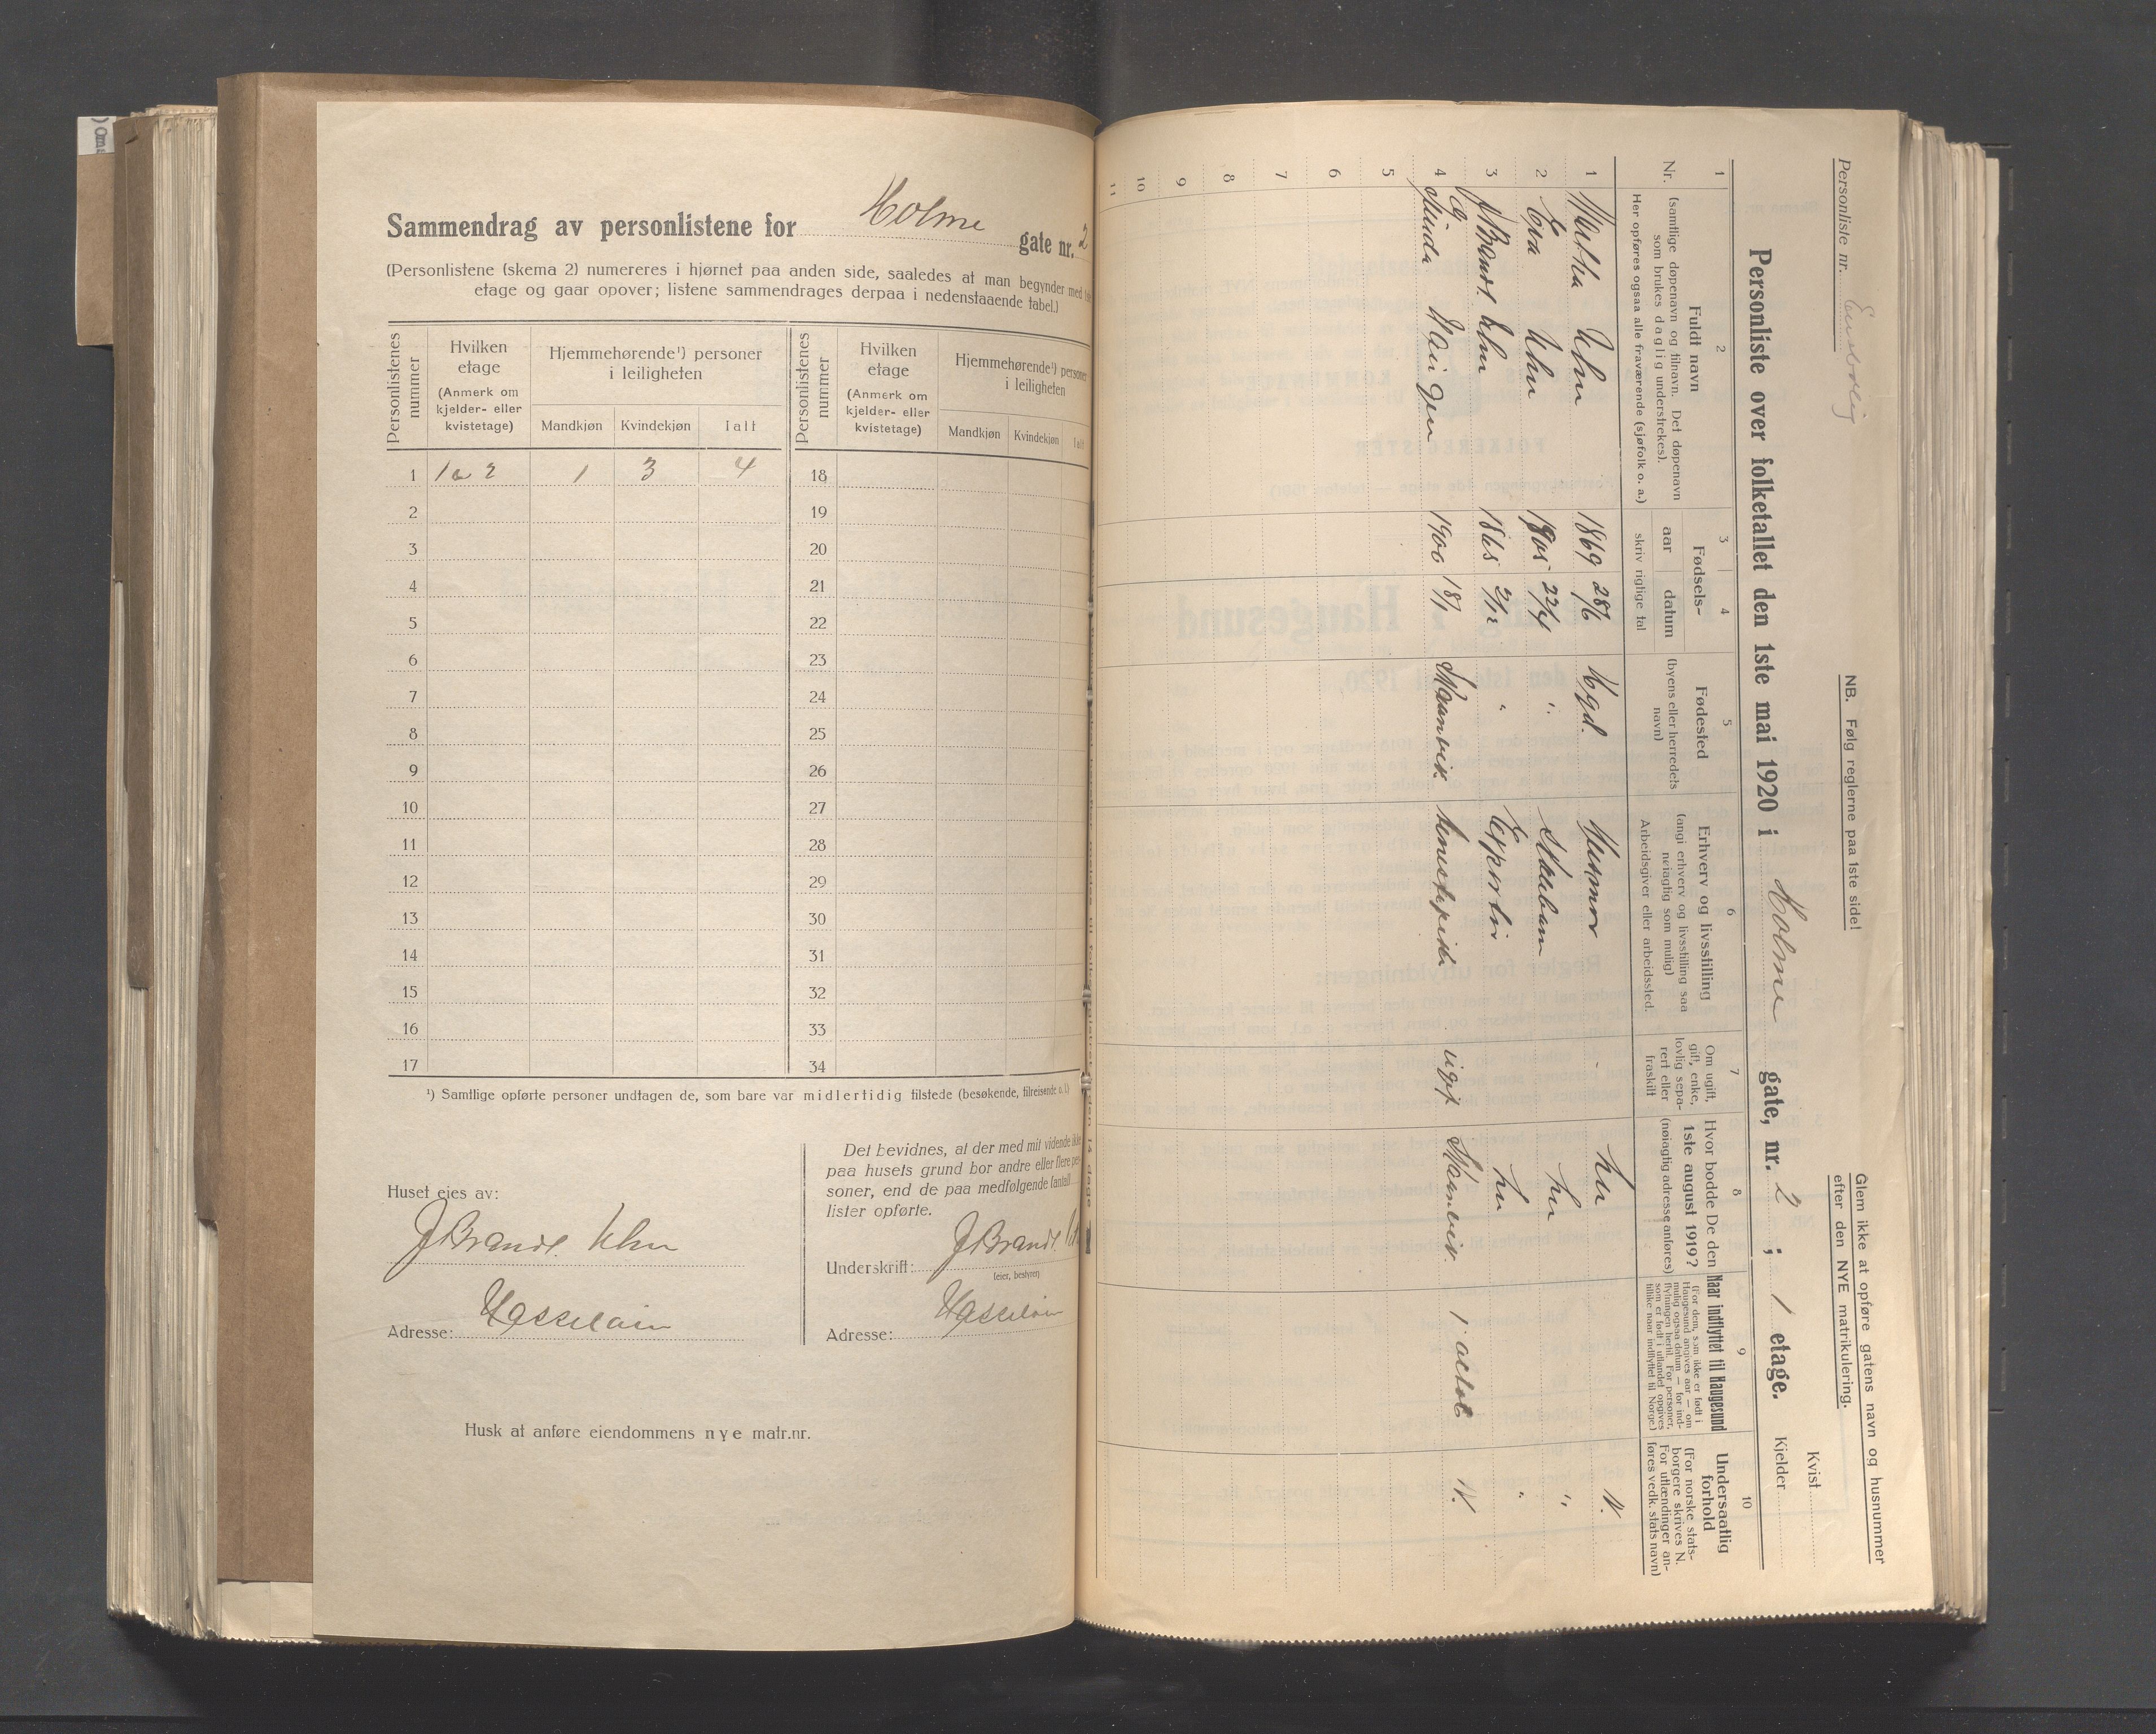 Sammendrag av personlistene for Holme gate nr. 2
(Personlistene (skema 2) numereres i hjørnet paa anden side, saaledes at man begynder med
etage og gaar opover; listene sammendrages derpaa i nedenstaaende tabel.)
Personlistenes nummer
Hvilken etage
(Anmerk om kjelder- eller kvistetage)
Hjemmehørende¹) personer i leiligheten
Mandkjøn Kvindekjøn Ialt
Personlistenes nummer
Hvilken etage
(Anmerk om kjelder- eller kvistetage)
Hjemmehørende¹) personer i leiligheten
Mandkjøn Kvindekjøn Ialt
1 1 & 2 1 3 4 18
2 19
3 20
4 21
5 22
6 23
7 24
8 25
9 26
10 27
11 28
12 29
13 30
14 31
15 32
16 33
17 34
¹) Samtlige opførte personer undtagen de, som bare var midlertidig tilstede (besøkende, tilreisende o. l.)
Huset eies av:
J Brandt Uhn
Adresse:
Det bevidnes, at der med mit vidende ikke
paa husets grund bor andre eller flere per-
soner, end de paa medfølgende (antall
lister opførte.
Underskrift: J Brandt
(eier, bestyrer)
Adresse:
Husk at anføre eiendommens nye matr.nr.
Personliste nr.
NB. Følg reglerne paa 1ste side!
Glem ikke at opføre gatens navn og husnummer
efter den NYE matrikulering.
Kvist
Personliste over folketallet den 1ste mai 1920 i Holme gate, nr. 2 ; 1 etage.
Kjelder
1 2 3 4 5 6 7 8 9 10
Nr.
Fuldt navn
(samtlige døpenavn og tilnavn. Det døpenavn
som brukes daglig understrekes).
Her opføres ogsaa alle fraværende (sjøfolk o. a.)
Fødsels-
aar datum
skriv rigtige tal
Fødested
(byens eller herredets
navn)
Erhverv og livsstilling
(angi erhverv og livsstilling saa
nøiagtig som mulig)
Arbeidsgiver eller arbeidssted.
Om ugift,
gift, enke,
lovlig sepa-
rert eller
fraskilt
Hvor bodde De den
1ste august 1919?
(nøiagtig adresse anføres)
Naar indflyttet til Haugesund
(For dem, som ikke er født i
Haugesund angives aar — om
mulig ogsaa datum — for ind-
flytningen hertil. For personer,
som er født i utlandet opgives
tillike naar indflyttet til Norge.)
Undersaatlig
forhold
(For norske stats-
borgere skrives N.
For utlændinger an-
føres vedk. stats navn)
1 Martha Uhn 1869 28/6 Hgd. Husmor her N.
2 Eva Uhn 1905 22/4 " Skuban her "
3 J Brandt Uhn 1865 2/12 " Exportør her "
4 1900 18/1 ugift 1 octob N.
5
6
7
8
9
10
11